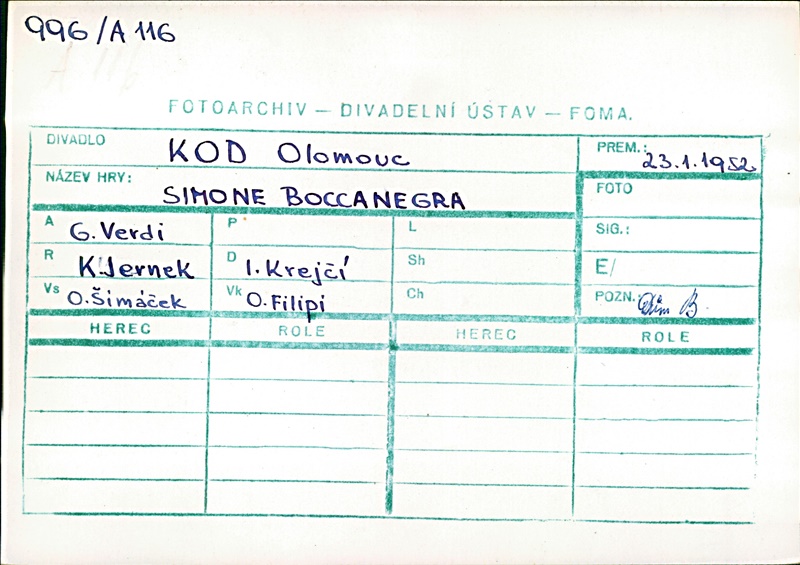 996/A 116
FOTOARCHIV – DIVADELNÍ ÚSTAV – FOMA.
DIVADLO KOD Olomouc PREM.: 23.1.1952
NÁZEV HRY: SIMONE BOCCANEGRA FOTO
A G. Verdi P L SIG.:
R K. Jernek D I. Krejčí Sh E/
Vs O. Šimáček Vk O. Filipi Ch POZN.:
HEREC ROLE HEREC ROLE